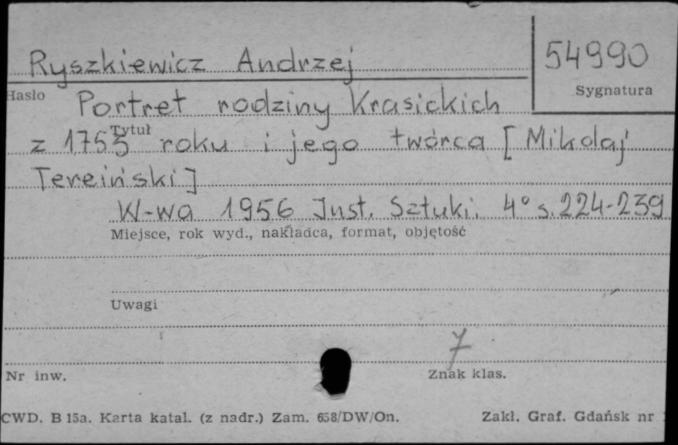 Ryszkiewicz Andrzej
54990
Hasło
Sygnatura
Portret rodziny Krasickich
Tytuł
z 1753 roku i jego twórca [Mikołaj
Tereiński]
W-wa 1956 Inst. Sztuki. 4° s. 224-239
Miejsce, rok wyd., nakładca, format, objętość
Uwagi
7
Nr inw.
Znak klas.
CWD. B 15a. Karta katal. (z nadr.) Zam. 658/DW/On.
Zakł. Graf. Gdańsk nr